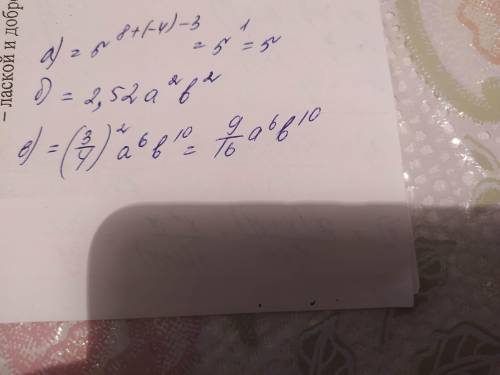 – лаской и добро
а) = 5^{8+(-4)-3} = 5^1 = 5
б) = 2,52 a^2 b^2
в) = (3/4)^2 a^6 b^{10} = 9/16 a^6 b^{10}